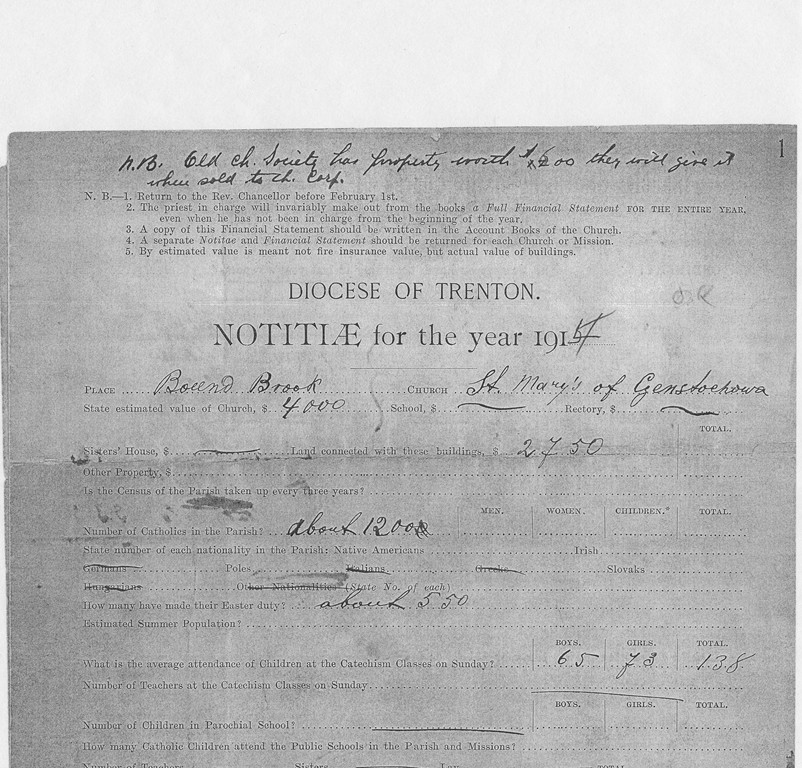 N.B. Old Ch. Society has property worth they will give it
when sold to Ch. Corp.
1
N. B.—1. Return to the Rev. Chancellor before February 1st.
2. The priest in charge will invariably make out from the books a Full Financial Statement FOR THE ENTIRE YEAR,
even when he has not been in charge from the beginning of the year.
3. A copy of this Financial Statement should be written in the Account Books of the Church.
4. A separate Notitae and Financial Statement should be returned for each Church or Mission.
5. By estimated value is meant not fire insurance value, but actual value of buildings.
DIOCESE OF TRENTON.
OK
NOTITIÆ for the year 191
PLACE Bound Brook CHURCH St. Mary's of Czenstochowa
State estimated value of Church, $ 4000 School, $ Rectory, $
TOTAL.
Sisters' House, $ Land connected with these buildings, $ 2750
Other Property, $
Is the Census of the Parish taken up every three years?
MEN. WOMEN. CHILDREN.* TOTAL.
Number of Catholics in the Parish? about 1200
State number of each nationality in the Parish: Native Americans Irish
Germans Poles Italians Greeks Slovaks
Hungarians Other Nationalities (State No. of each)
How many have made their Easter duty? about 550
Estimated Summer Population?
BOYS. GIRLS. TOTAL.
What is the average attendance of Children at the Catechism Classes on Sunday? 65 73 138
Number of Teachers at the Catechism Classes on Sunday
BOYS. GIRLS. TOTAL.
Number of Children in Parochial School?
How many Catholic Children attend the Public Schools in the Parish and Missions?
Number of Teachers Sisters Lay TOTAL